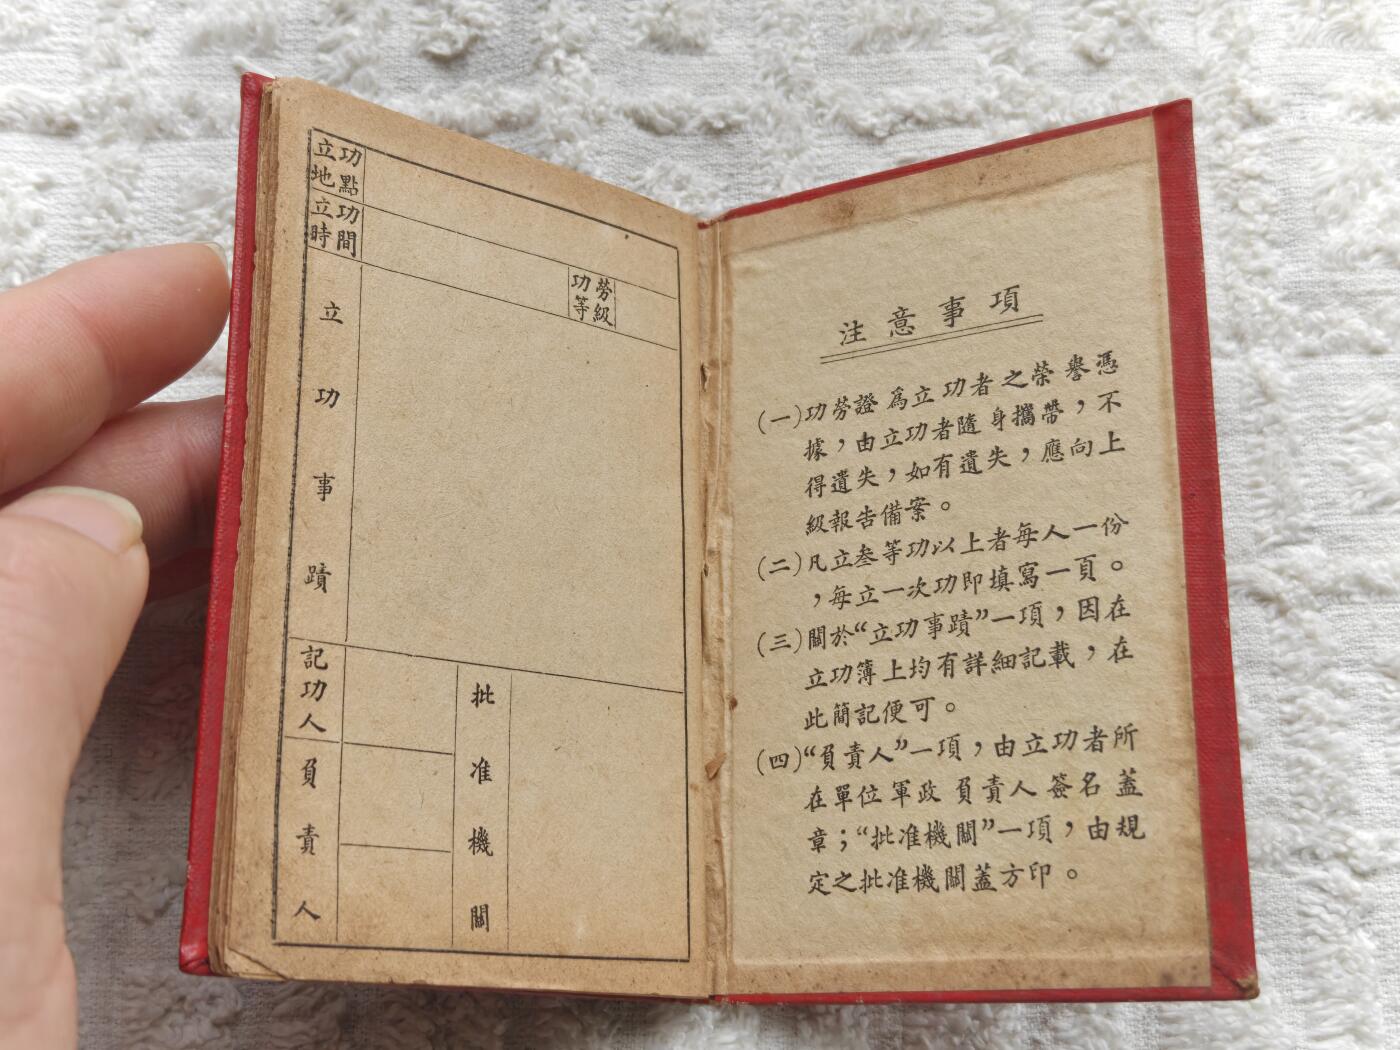 立功
地點
立功
時間
功勞
等級
立功事蹟
記功人
負責人
批准機關
注意事項
(一)功勞證為立功者之榮譽憑
據，由立功者隨身攜帶，不
得遺失，如有遺失，應向上
級報告備案。
(二)凡立叁等功以上者每人一份
，每立一次功即填寫一頁。
(三)關於“立功事蹟”一項，因在
立功簿上均有詳細記載，在
此簡記便可。
(四)“負責人”一項，由立功者所
在單位軍政負責人簽名蓋
章；“批准機關”一項，由規
定之批准機關蓋方印。